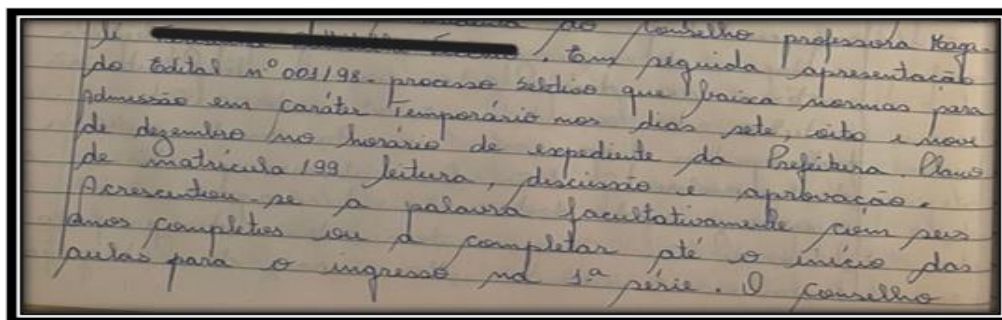 do Conselho professora Magi-
li . Em seguida apresentação
do Edital nº 001/98 - processo seletivo que baixa normas para
admissão em caráter Temporário nos dias sete, oito e nove
de dezembro no horário de expediente da Prefeitura. Plano
de matrícula /99 leitura, discussão e aprovação.
Acrescentou-se a palavra facultativamente com seis
anos completos ou a completar até o início das
aulas para o ingresso na 1ª série. O Conselho